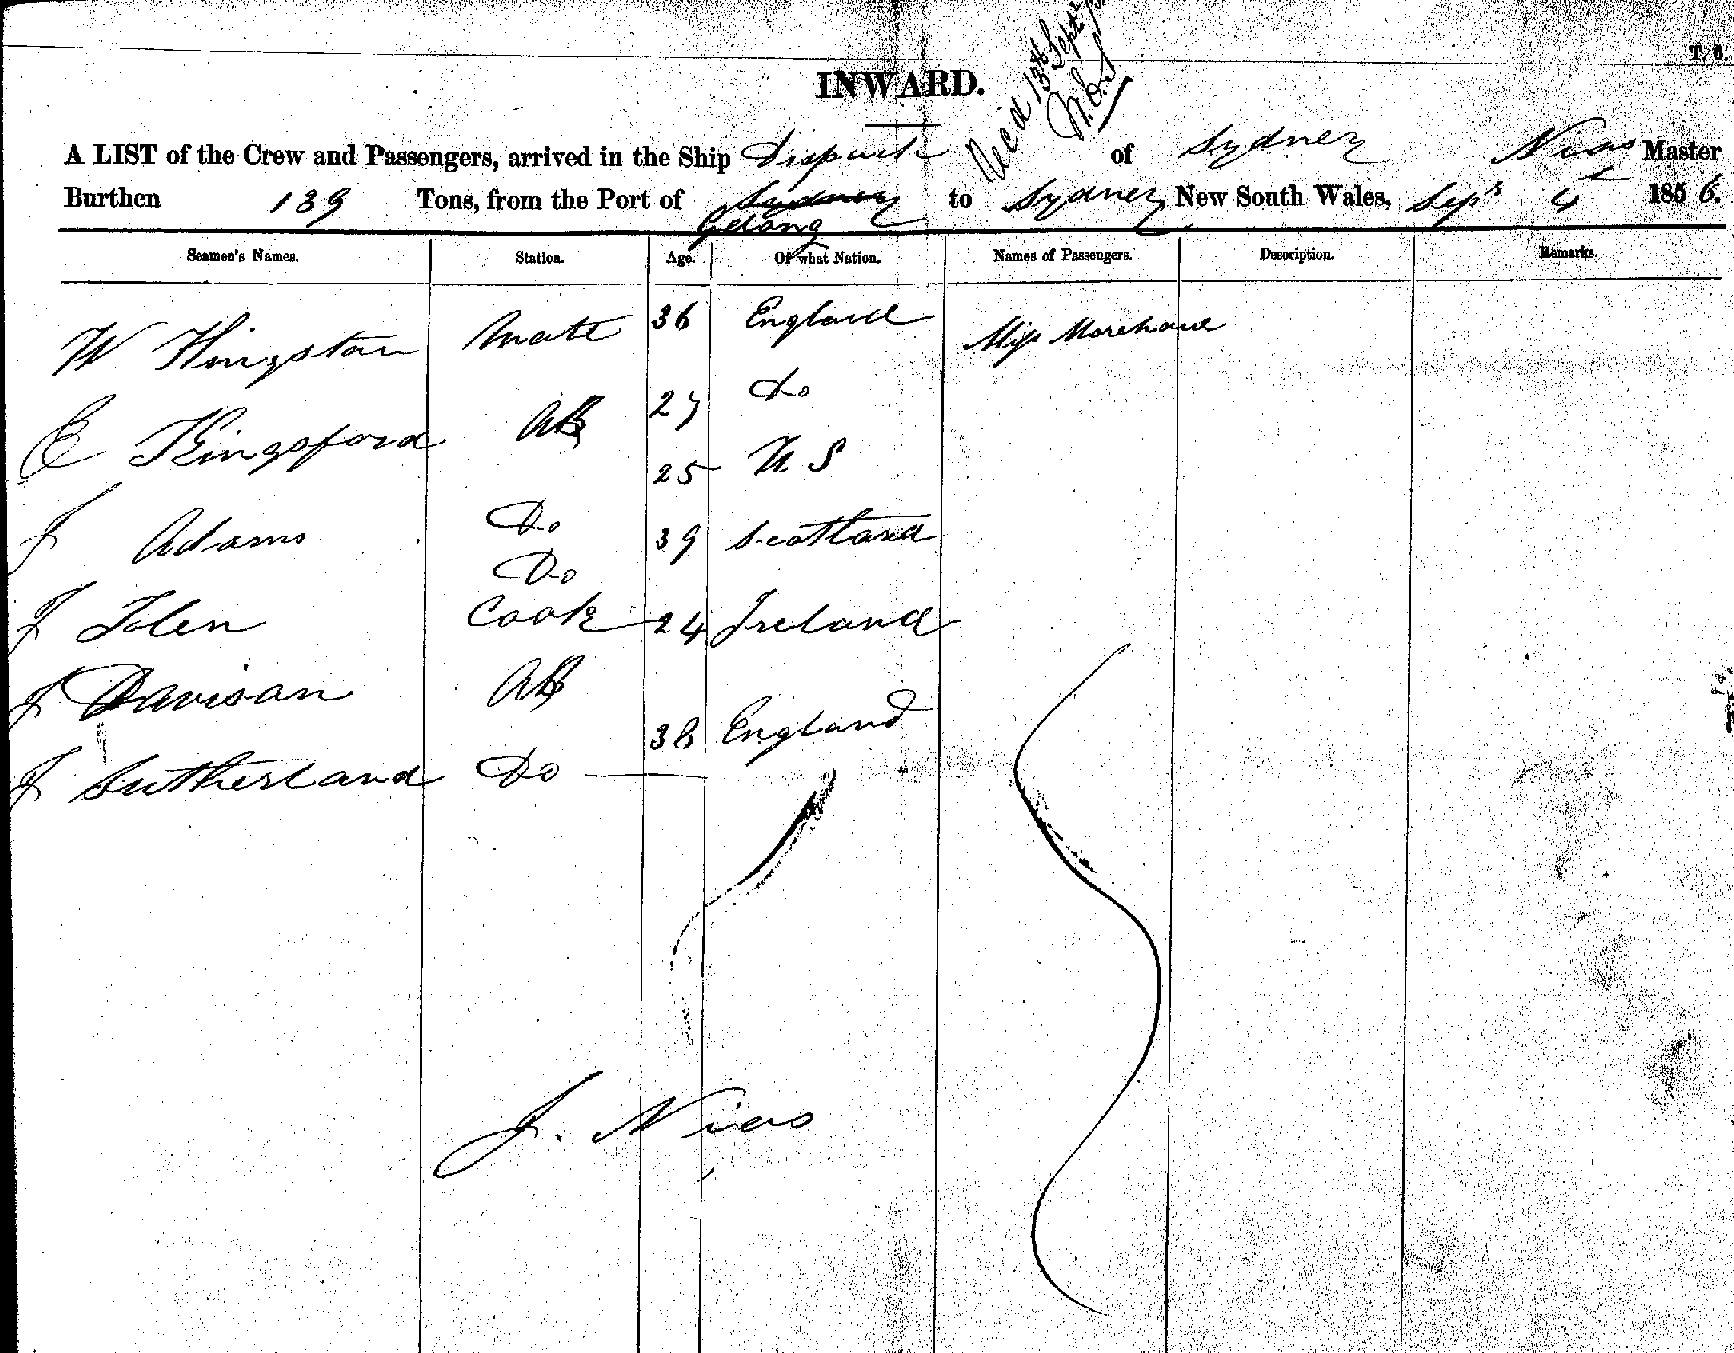 T. 6.
INWARD.
Rec'd 13th Sept
A LIST of the Crew and Passengers, arrived in the Ship Dispatch of Sydney Nias Master
Burthen 139 Tons, from the Port of Sydney Gelong to Sydney New South Wales, Sepr 5 1856.
Seamen's Names. Station. Age. Of what Nation. Names of Passengers. Description. Remarks.
W Kingston Mate 36 England Miss Morehead
E Kingsford AB 27 Do
25 U S
J Adams Do 39 Scotland
Do
J Tolen Cook 24 Ireland
J Davison AB
38 England
J Sutherland Do
J. Nias